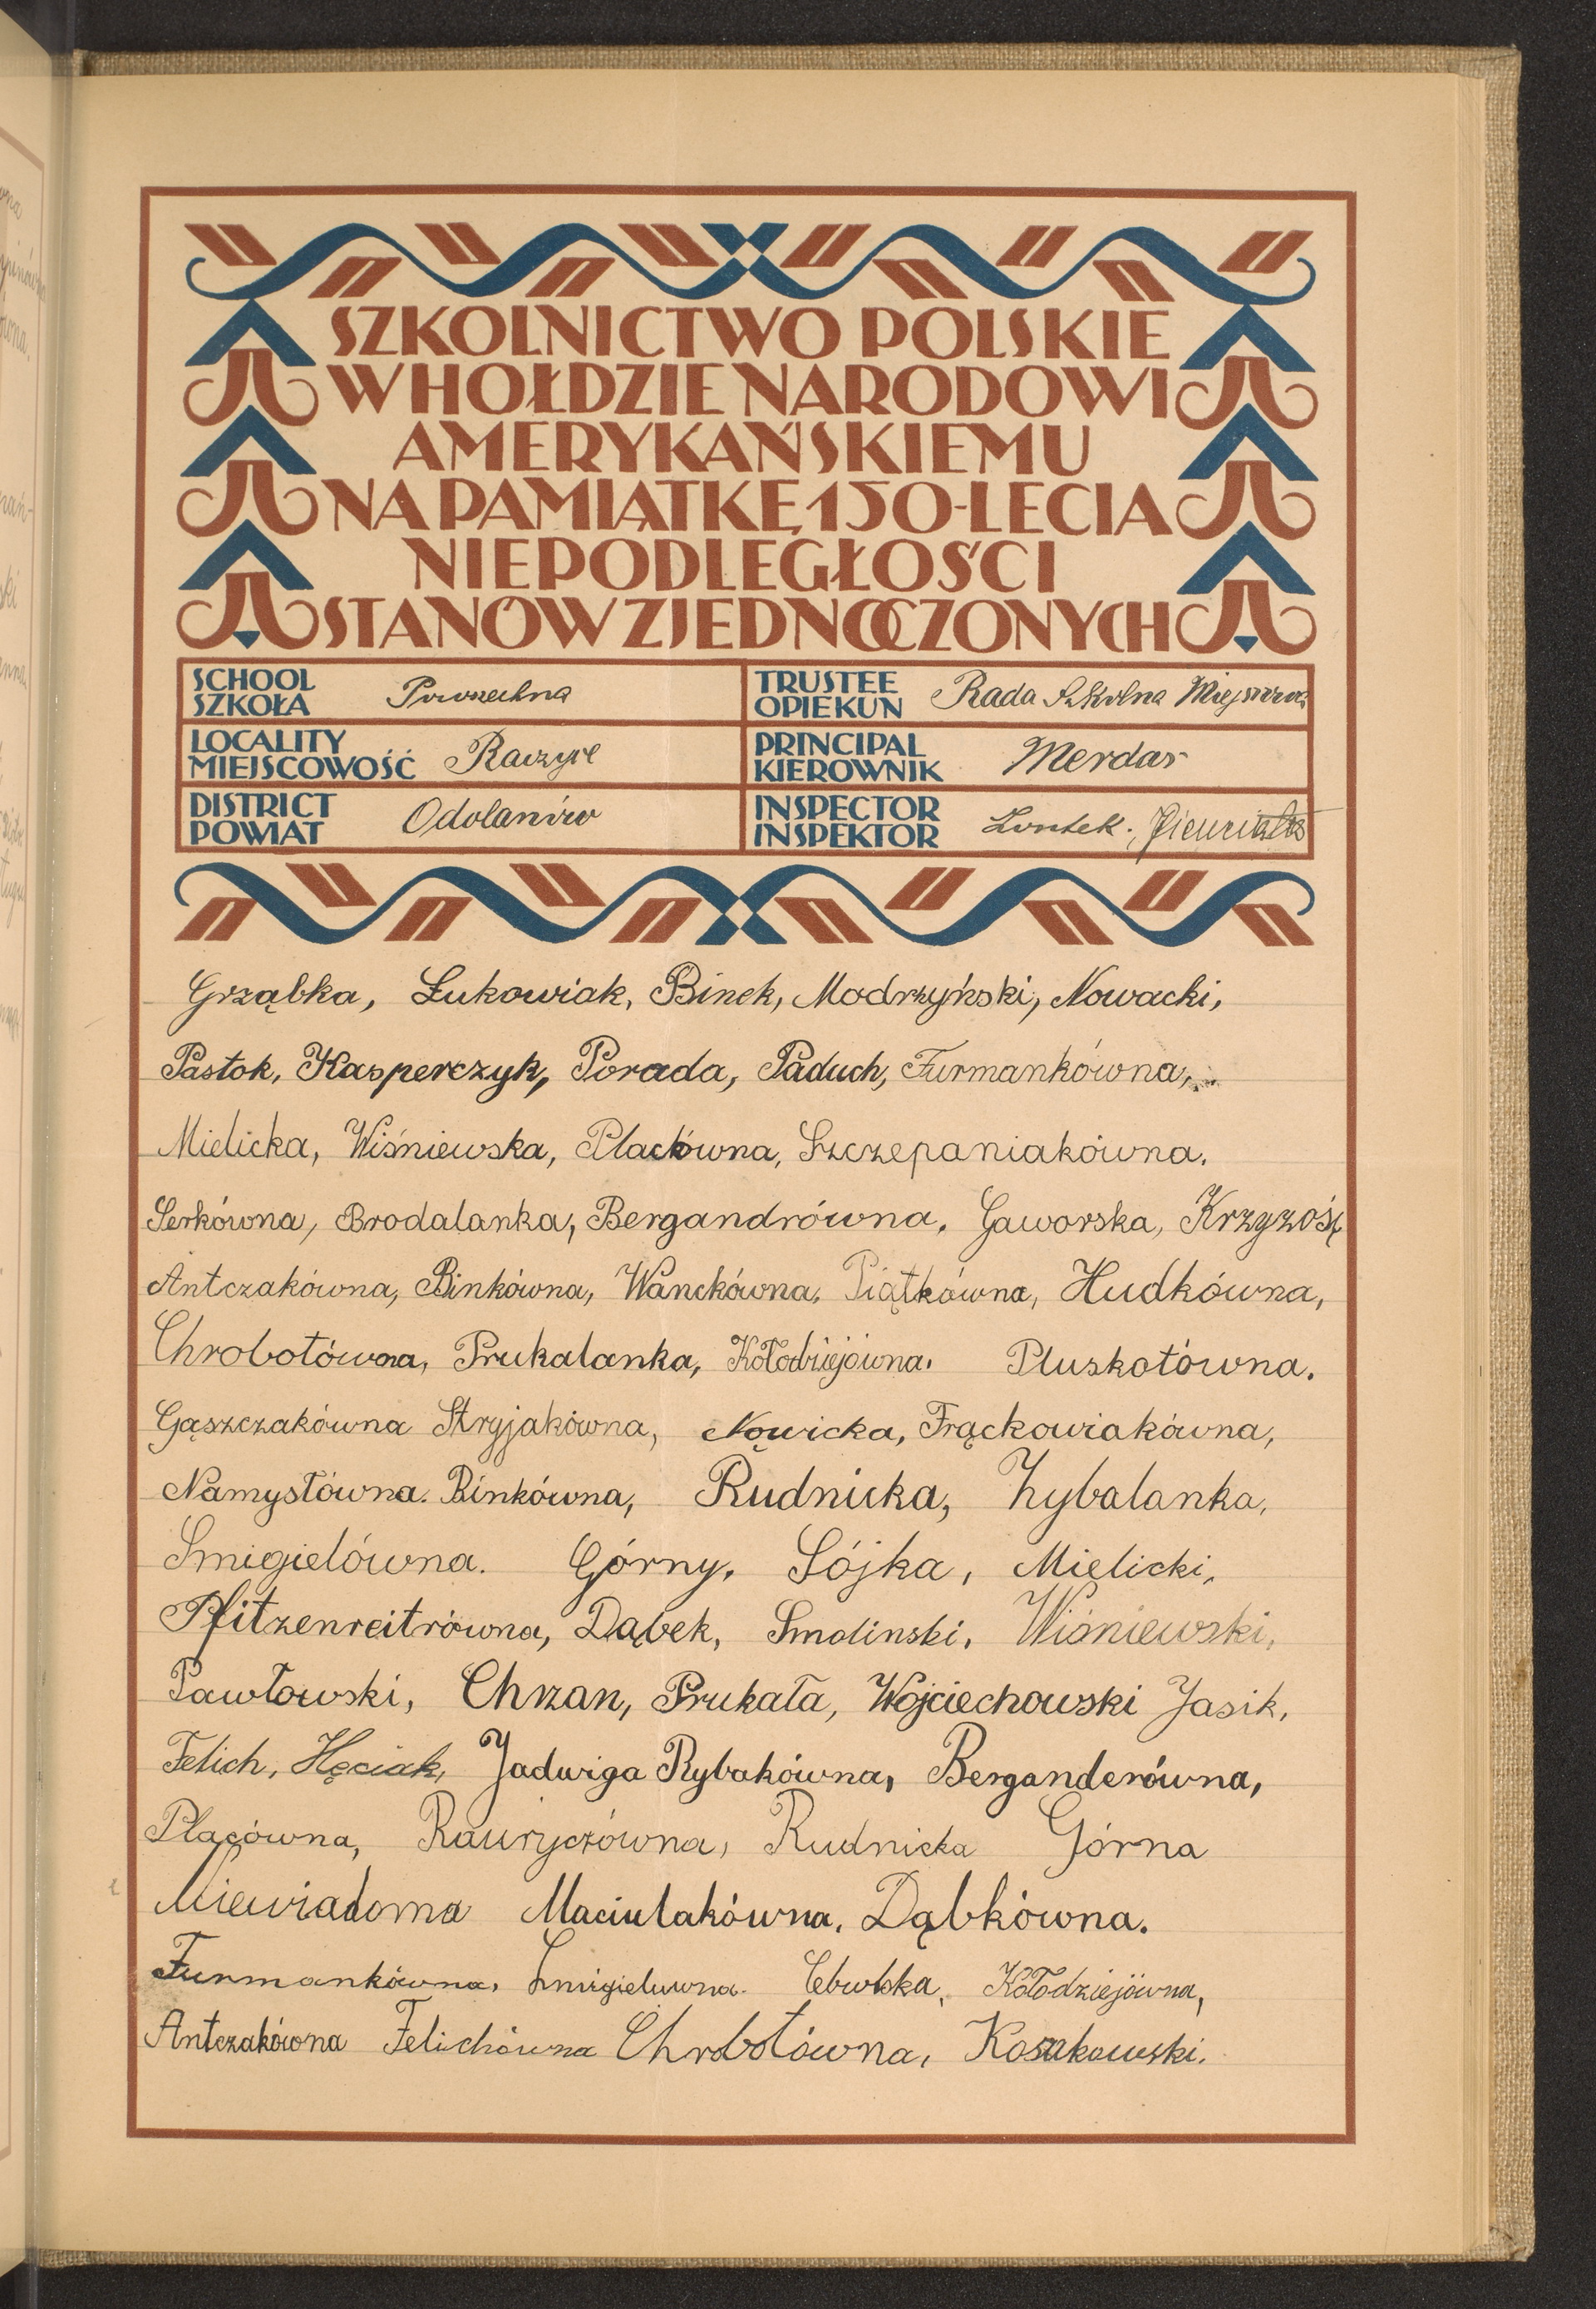 SZKOLNICTWO POLSKIE
W HOŁDZIE NARODOWI
AMERYKAŃSKIEMU
NA PAMIĄTKĘ 150-LECIA
NIEPODLEGŁOŚCI
STANÓW ZJEDNOCZONYCH
SCHOOL
SZKOŁA Powszechna
TRUSTEE
OPIEKUN Rada Szkolna Miejscowa
LOCALITY
MIEJSCOWOŚĆ Raczyce
PRINCIPAL
KIEROWNIK Merdas
DISTRICT
POWIAT Odolanów
INSPECTOR
INSPEKTOR
Grząbka, Łukowiak, Binek, Modrzyński, Nowacki,
Pastok, Kasperczyk, Porada, Paduch, Furmankówna,
Mielicka, Wiśniewska, Plackówna, Szczepaniakówna.
Serkówna, Brodalanka, Bergandrówna, Gaworska, Krzyżoś
Antczakówna, Binkówna, Wanckówna, Piątkówna, Hudkówna,
Chrobotówna, Prukalanka, Kołodziejówna. Pluskotówna.
Gąszczakówna Stryjakówna, Nowicka, Frąckowiakówna,
Namysłówna. Binkówna, Rudnicka, Zybalanka,
Smigielówna. Górny, Sójka, Mielicki,
Pfitzenreitrówna, Dąbek, Smolinski, Wiśniewski,
Pawłowski, Chrzan, Prukała, Wojciechowski Jasik,
Felich, Hęciak, Jadwiga Rybakówna, Berganderówna,
Placówna, Rauryczówna, Rudnicka Górna
Niewiadoma Maciulakówna, Dąbkówna.
Furmankówna, Smigielówna. Cebulska, Kołodziejówna,
Antczakówna Felichówna Chrobotówna, Koszkowski.